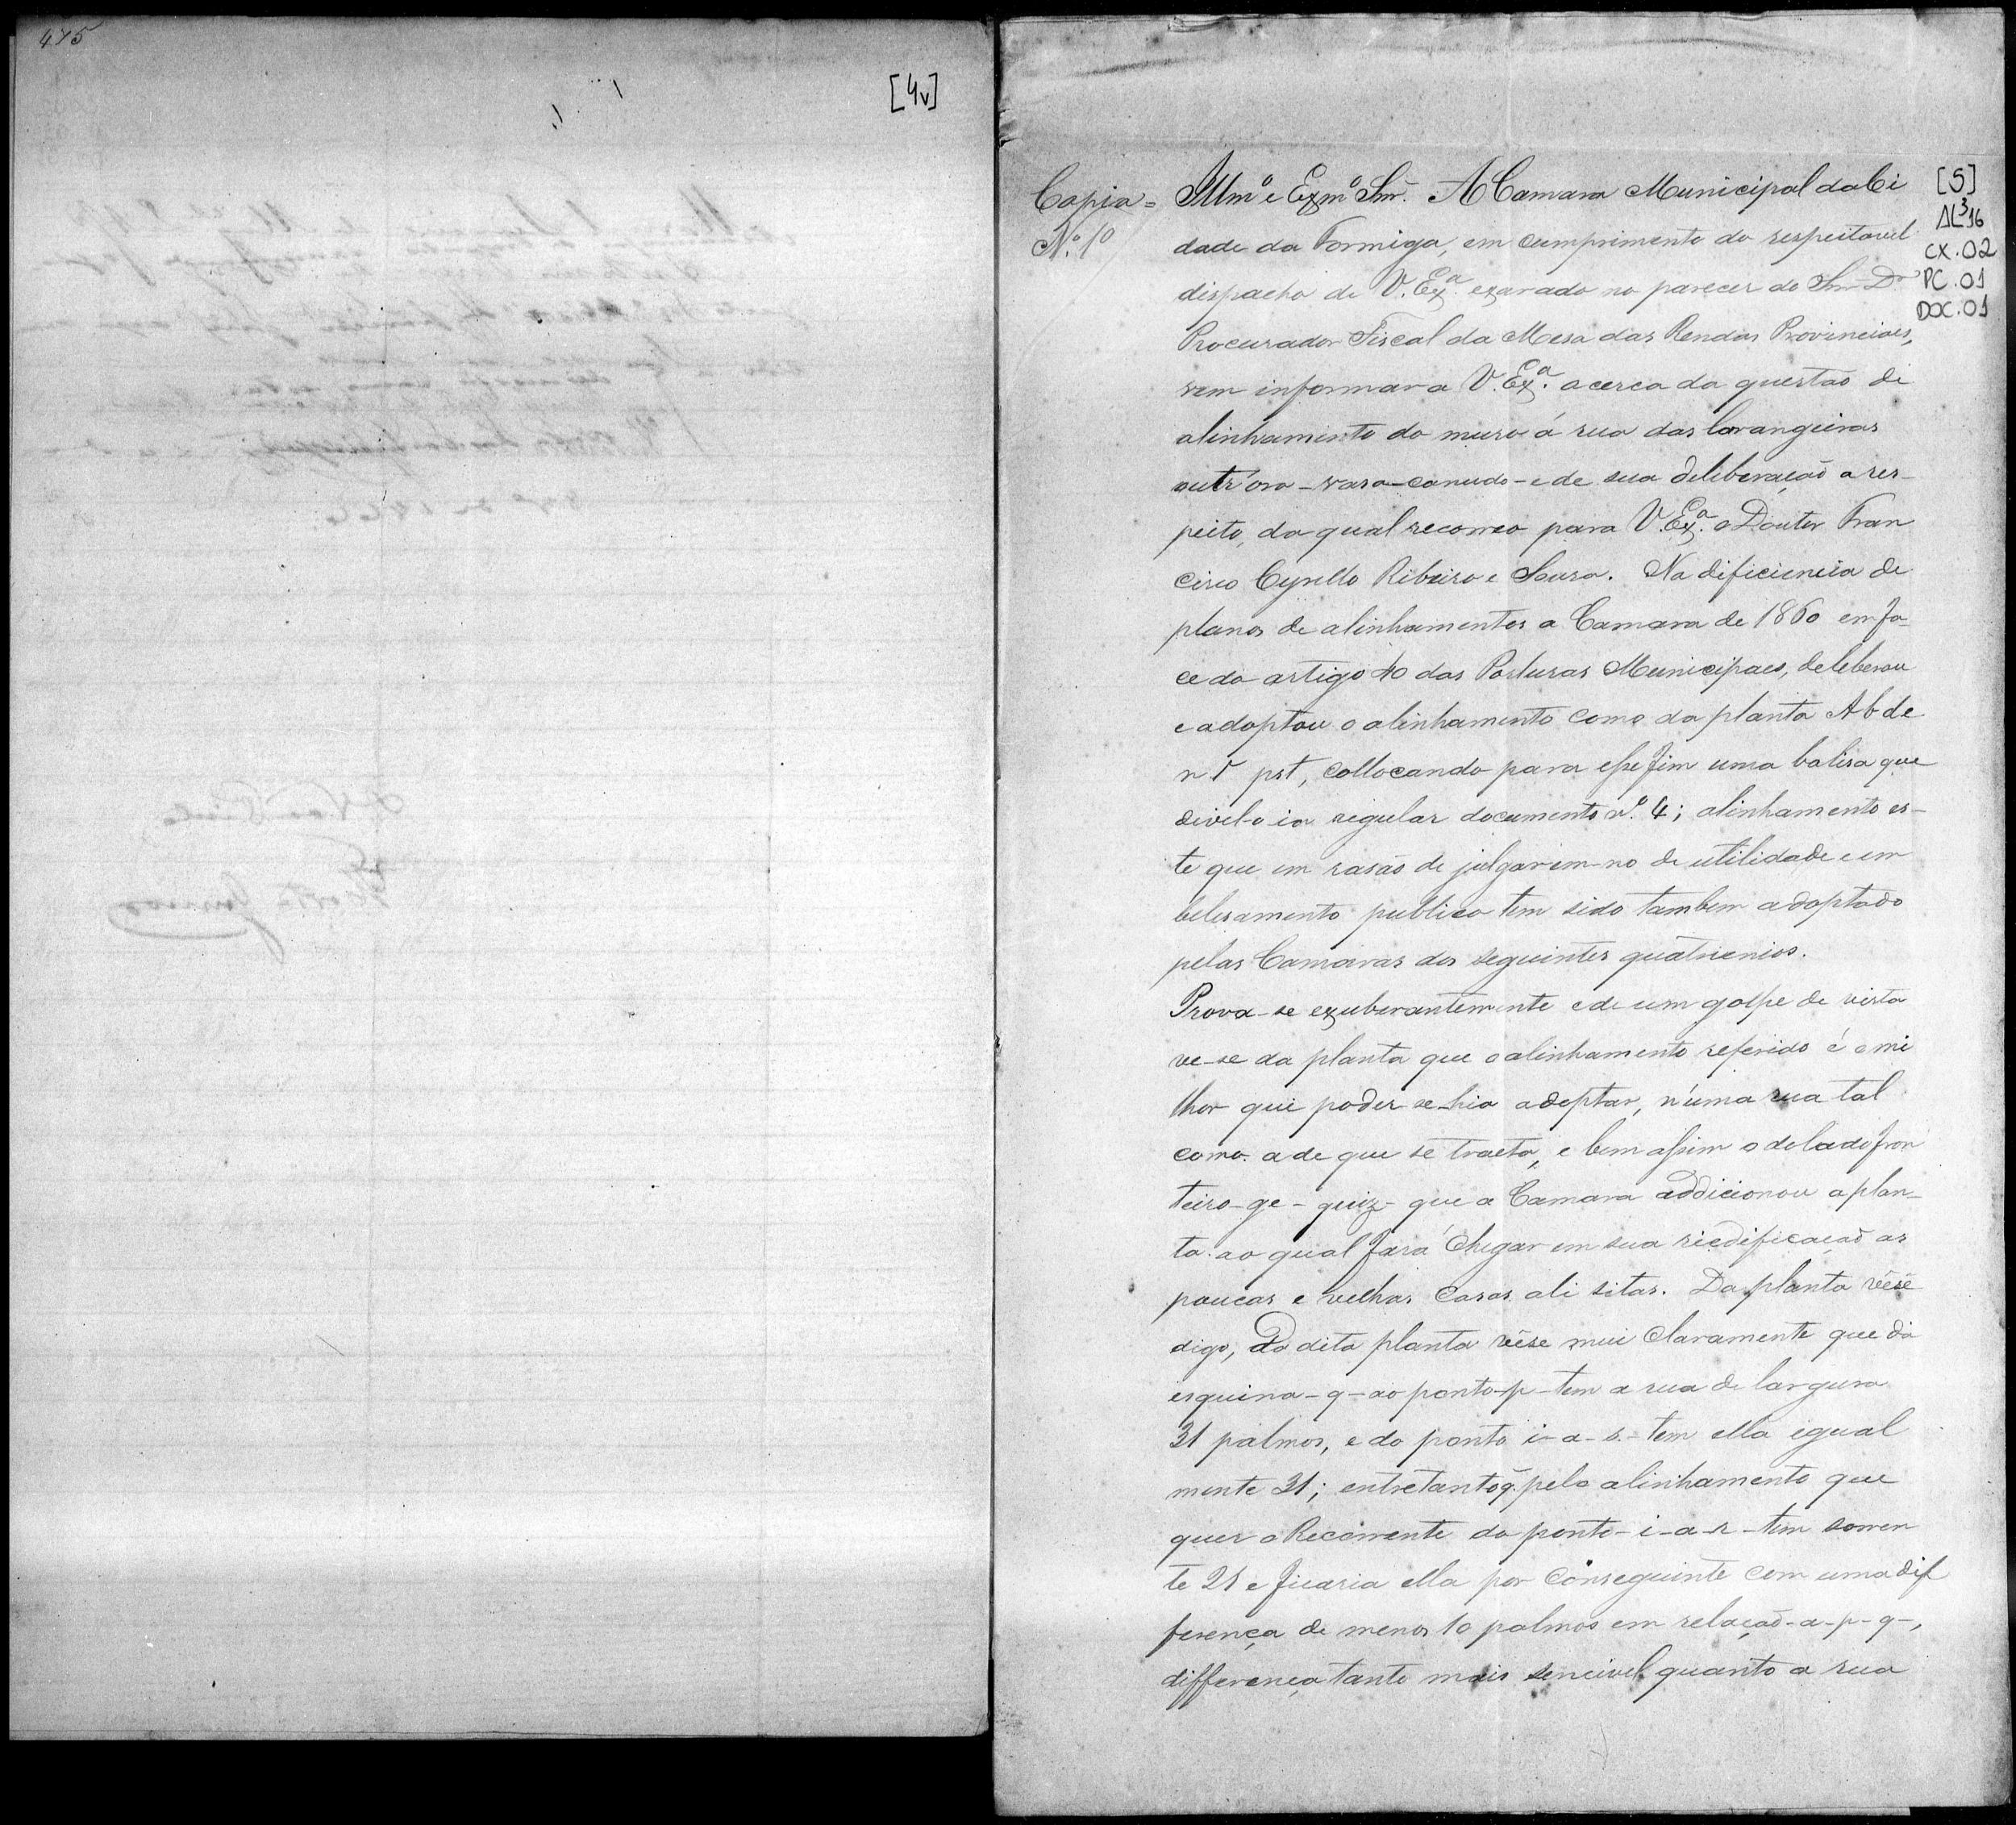 475
[4v]
[5]
AL³16
CX.02
PC.01
DOC.01
Copia =
N.º 1º
Illmº e Exmº Snr. A Camara Municipal da Ci
dade da Formiga, em cumprimento do respeitavel
dispacho de V. Exª. exarado no parecer do Snr Dr
Procurador Fiscal da Mesa das Rendas Provinciaes,
vem informar a V. Exª. acerca da questão di
alinhamento do muro á rua das Larangeiras
outr'ora - vara-canudo - e de sua deleberação a res-
peito, da qual recorreo para V. Exª. o Doutor Fran
cisco Cyrillo Ribeiro e Sousa. Na dificiencia de
planos de alinhamentos a Camara de 1860 em fa-
ce do artigo 10 das Posturas Municipaes, deleberou
e adoptou o alinhamento como da planta A b de
n r pst, collocando para esse fim uma balisa que
divel-o-ia regular documento nº. 4; alinhamento es-
te que em rasão de julgarem-no de utilidade e em
belesamento publico tem sido tambem adoptado
pelas Camaras dos seguintes quatrienios.
Prova-se exuberantemente e de um golpe de vista
ve-se da planta que o alinhamento referido é o mi
lhor que poder se-hia adoptar, n'uma rua tal
como a de que se tracta, e bem assim o do lado fron
teiro - ge - quiz - que a Camara addicionou a plan-
ta ao qual fará chegar em sua riedificação as
poucas e velhas casas ali sitas. Da planta vêse
digo, Da dita planta vêse mui claramente que da
esquina - q - ao ponto - p - tem a rua de largura
31 palmos, e do ponto i - a - s - tem ella igual
mente 31; entretanto q. pelo alinhamento que
quer o Recorrente do ponto - i - a - r - tem somen
te 21 e ficaria ella por conseguinte com uma dif
ferença de menos 10 palmos em relação - a - p - q -,
differença tanto mais sencivel quanto a rua